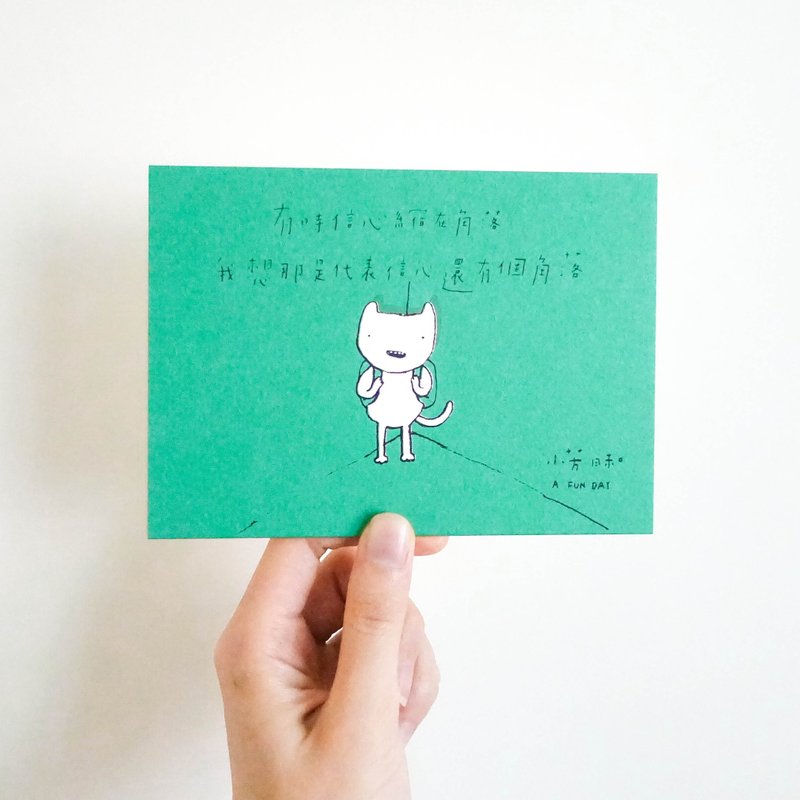 有時信心縮在角落
我想那是代表信心還有個角落
小芳日和
A FUN DAY